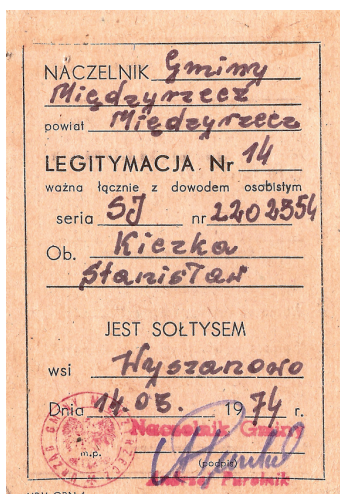 NACZELNIK Gminy
Międzyrzecz
powiat Międzyrzecz
LEGITYMACJA Nr 14
ważna łącznie z dowodem osobistym
seria SJ nr 2202354
Ob. Kiczka
Stanisław
JEST SOŁTYSEM
wsi Wyszanowo
Dnia 14.03. 1974 r.
Naczelnik Gminy
m.p.
(podpis)